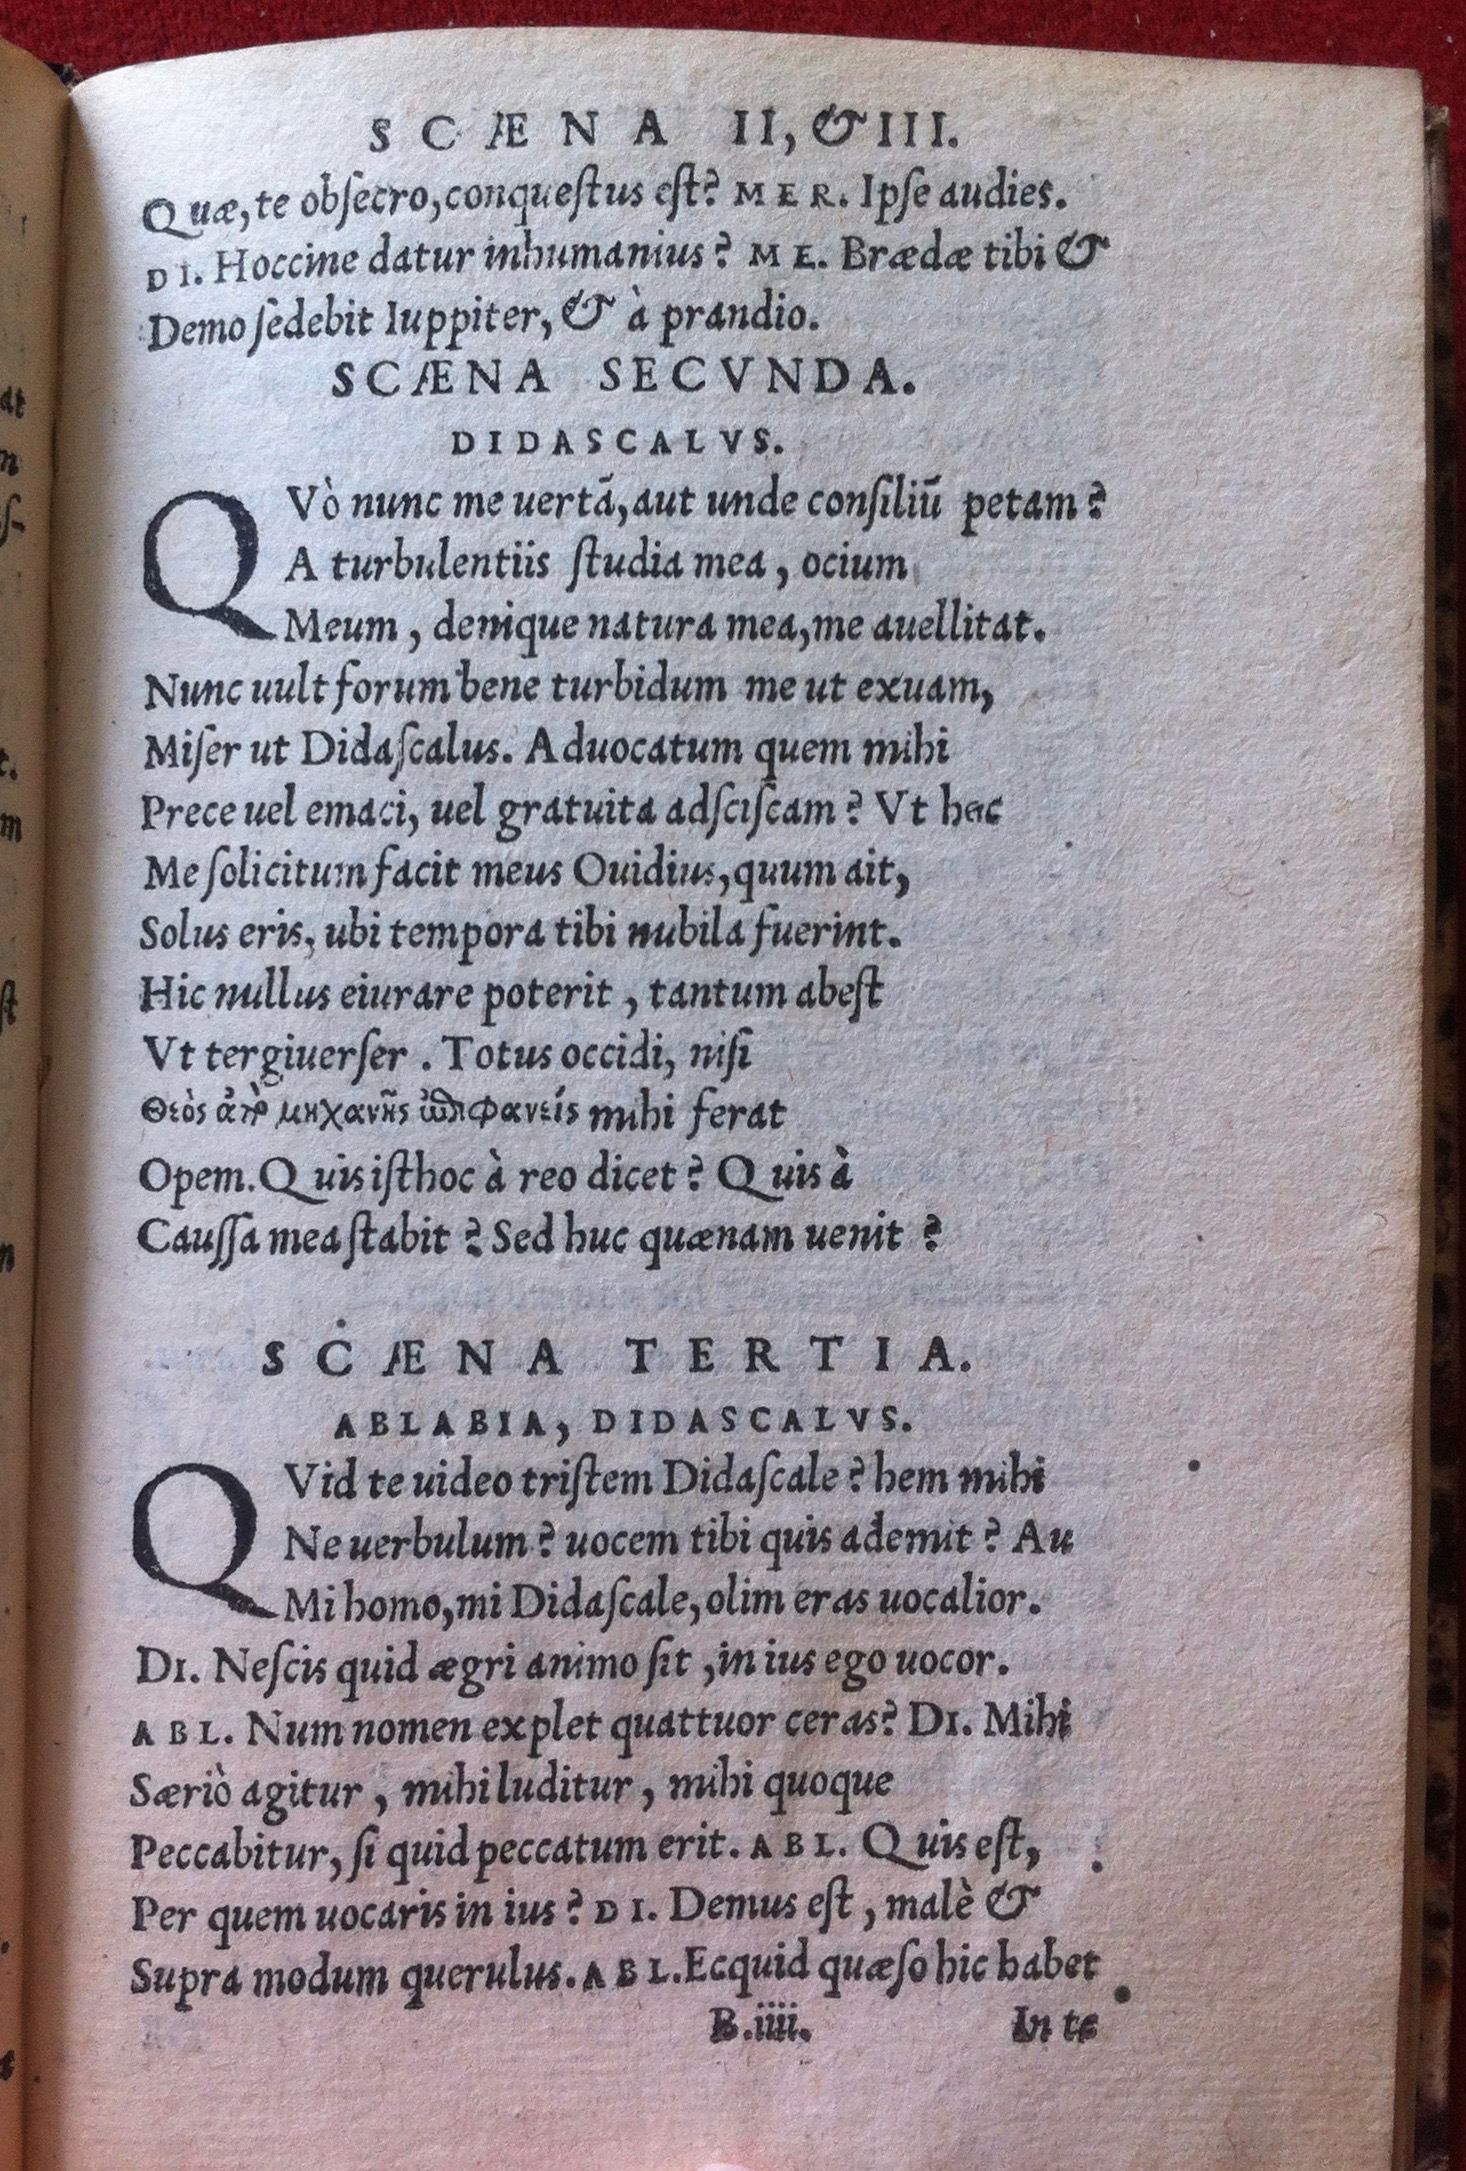 SCÆNA II, & III.
Quæ, te obſecro, conqueſtus eſt? MER. Ipſe audies.
DI. Hoccine datur inhumanius? ME. Brædæ tibi &
Demo ſedebit Iuppiter, & à prandio.
SCÆNA SECVNDA.
DIDASCALVS.
QVò nunc me uertã, aut unde conſiliũ petam?
A turbulentiis ſtudia mea, ocium
Meum, denique natura mea, me auellitat.
Nunc uult forum bene turbidum me ut exuam,
Miſer ut Didaſcalus. Aduocatum quem mihi
Prece uel emaci, uel gratuita adſciſcam? Vt hac
Me ſolicitum facit meus Ouidius, quum ait,
Solus eris, ubi tempora tibi nubila fuerint.
Hic nullus eiurare poterit, tantum abeſt
Vt tergiuerſer. Totus occidi, niſi
Θεὸς ἀπὸ μηχανῆς ἐπιφανείς mihi ferat
Opem. Quis iſthoc à reo dicet? Quis à
Cauſſa mea ſtabit? Sed huc quænam uenit?
SCÆNA TERTIA.
ABLABIA, DIDASCALVS.
QVid te uideo triſtem Didaſcale? hem mihi
Ne uerbulum? uocem tibi quis ademit? Au
Mi homo, mi Didaſcale, olim eras uocalior.
DI. Neſcis quid ægri animo ſit, in ius ego uocor.
ABL. Num nomen explet quattuor ceras? DI. Mihi
Særiò agitur, mihi luditur, mihi quoque
Peccabitur, ſi quid peccatum erit. ABL. Quis eſt,
Per quem uocaris in ius? DI. Demus eſt, malè &
Supra modum querulus. ABL. Ecquid quæſo hic habet
B.iiii. In te